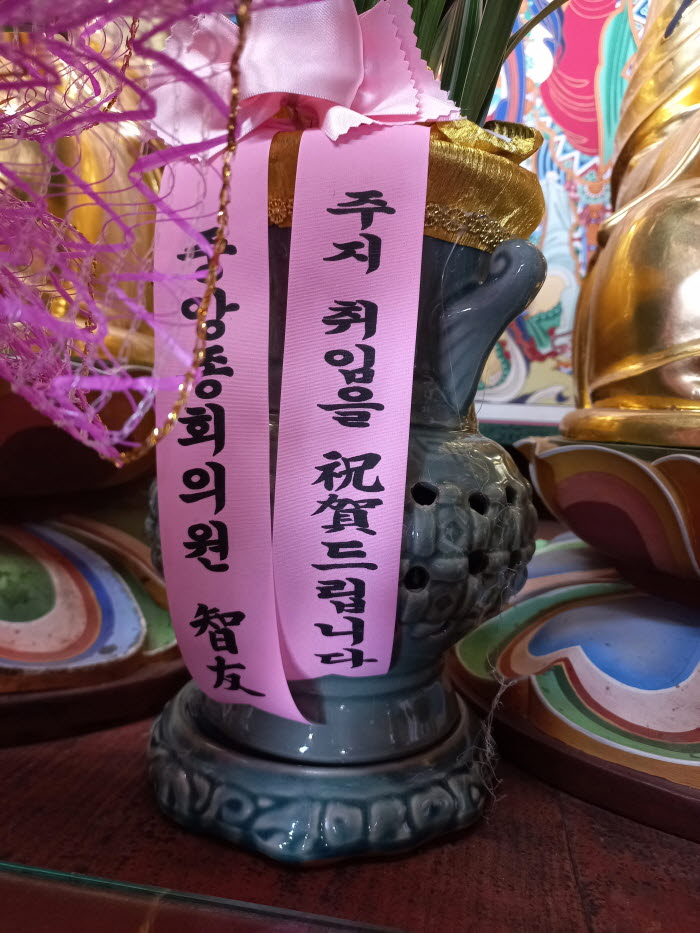 주지 취임을 祝賀드립니다
중앙종회의원 智友